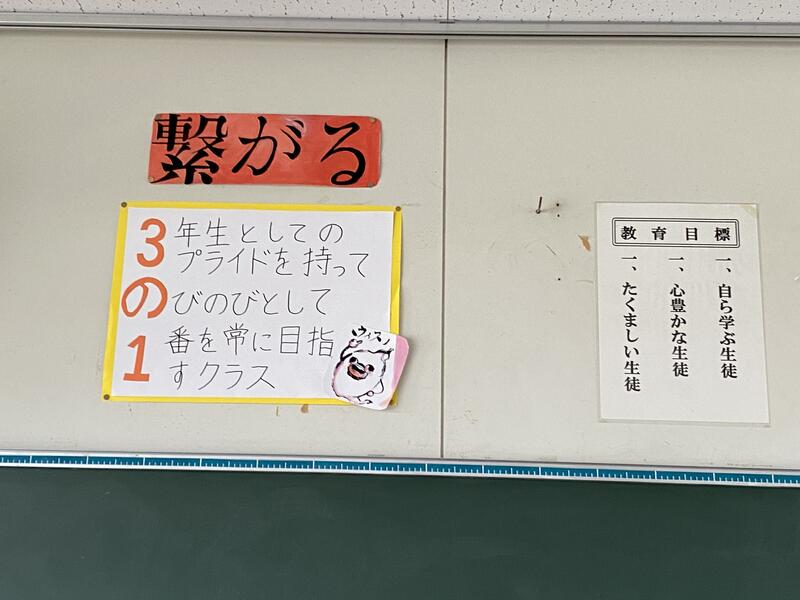 繋がる
3年生としての
プライドを持って
のびのびとして
1番を常に目指
すクラス
ウィスノ
教育目標
一、自ら学ぶ生徒
一、心豊かな生徒
一、たくましい生徒